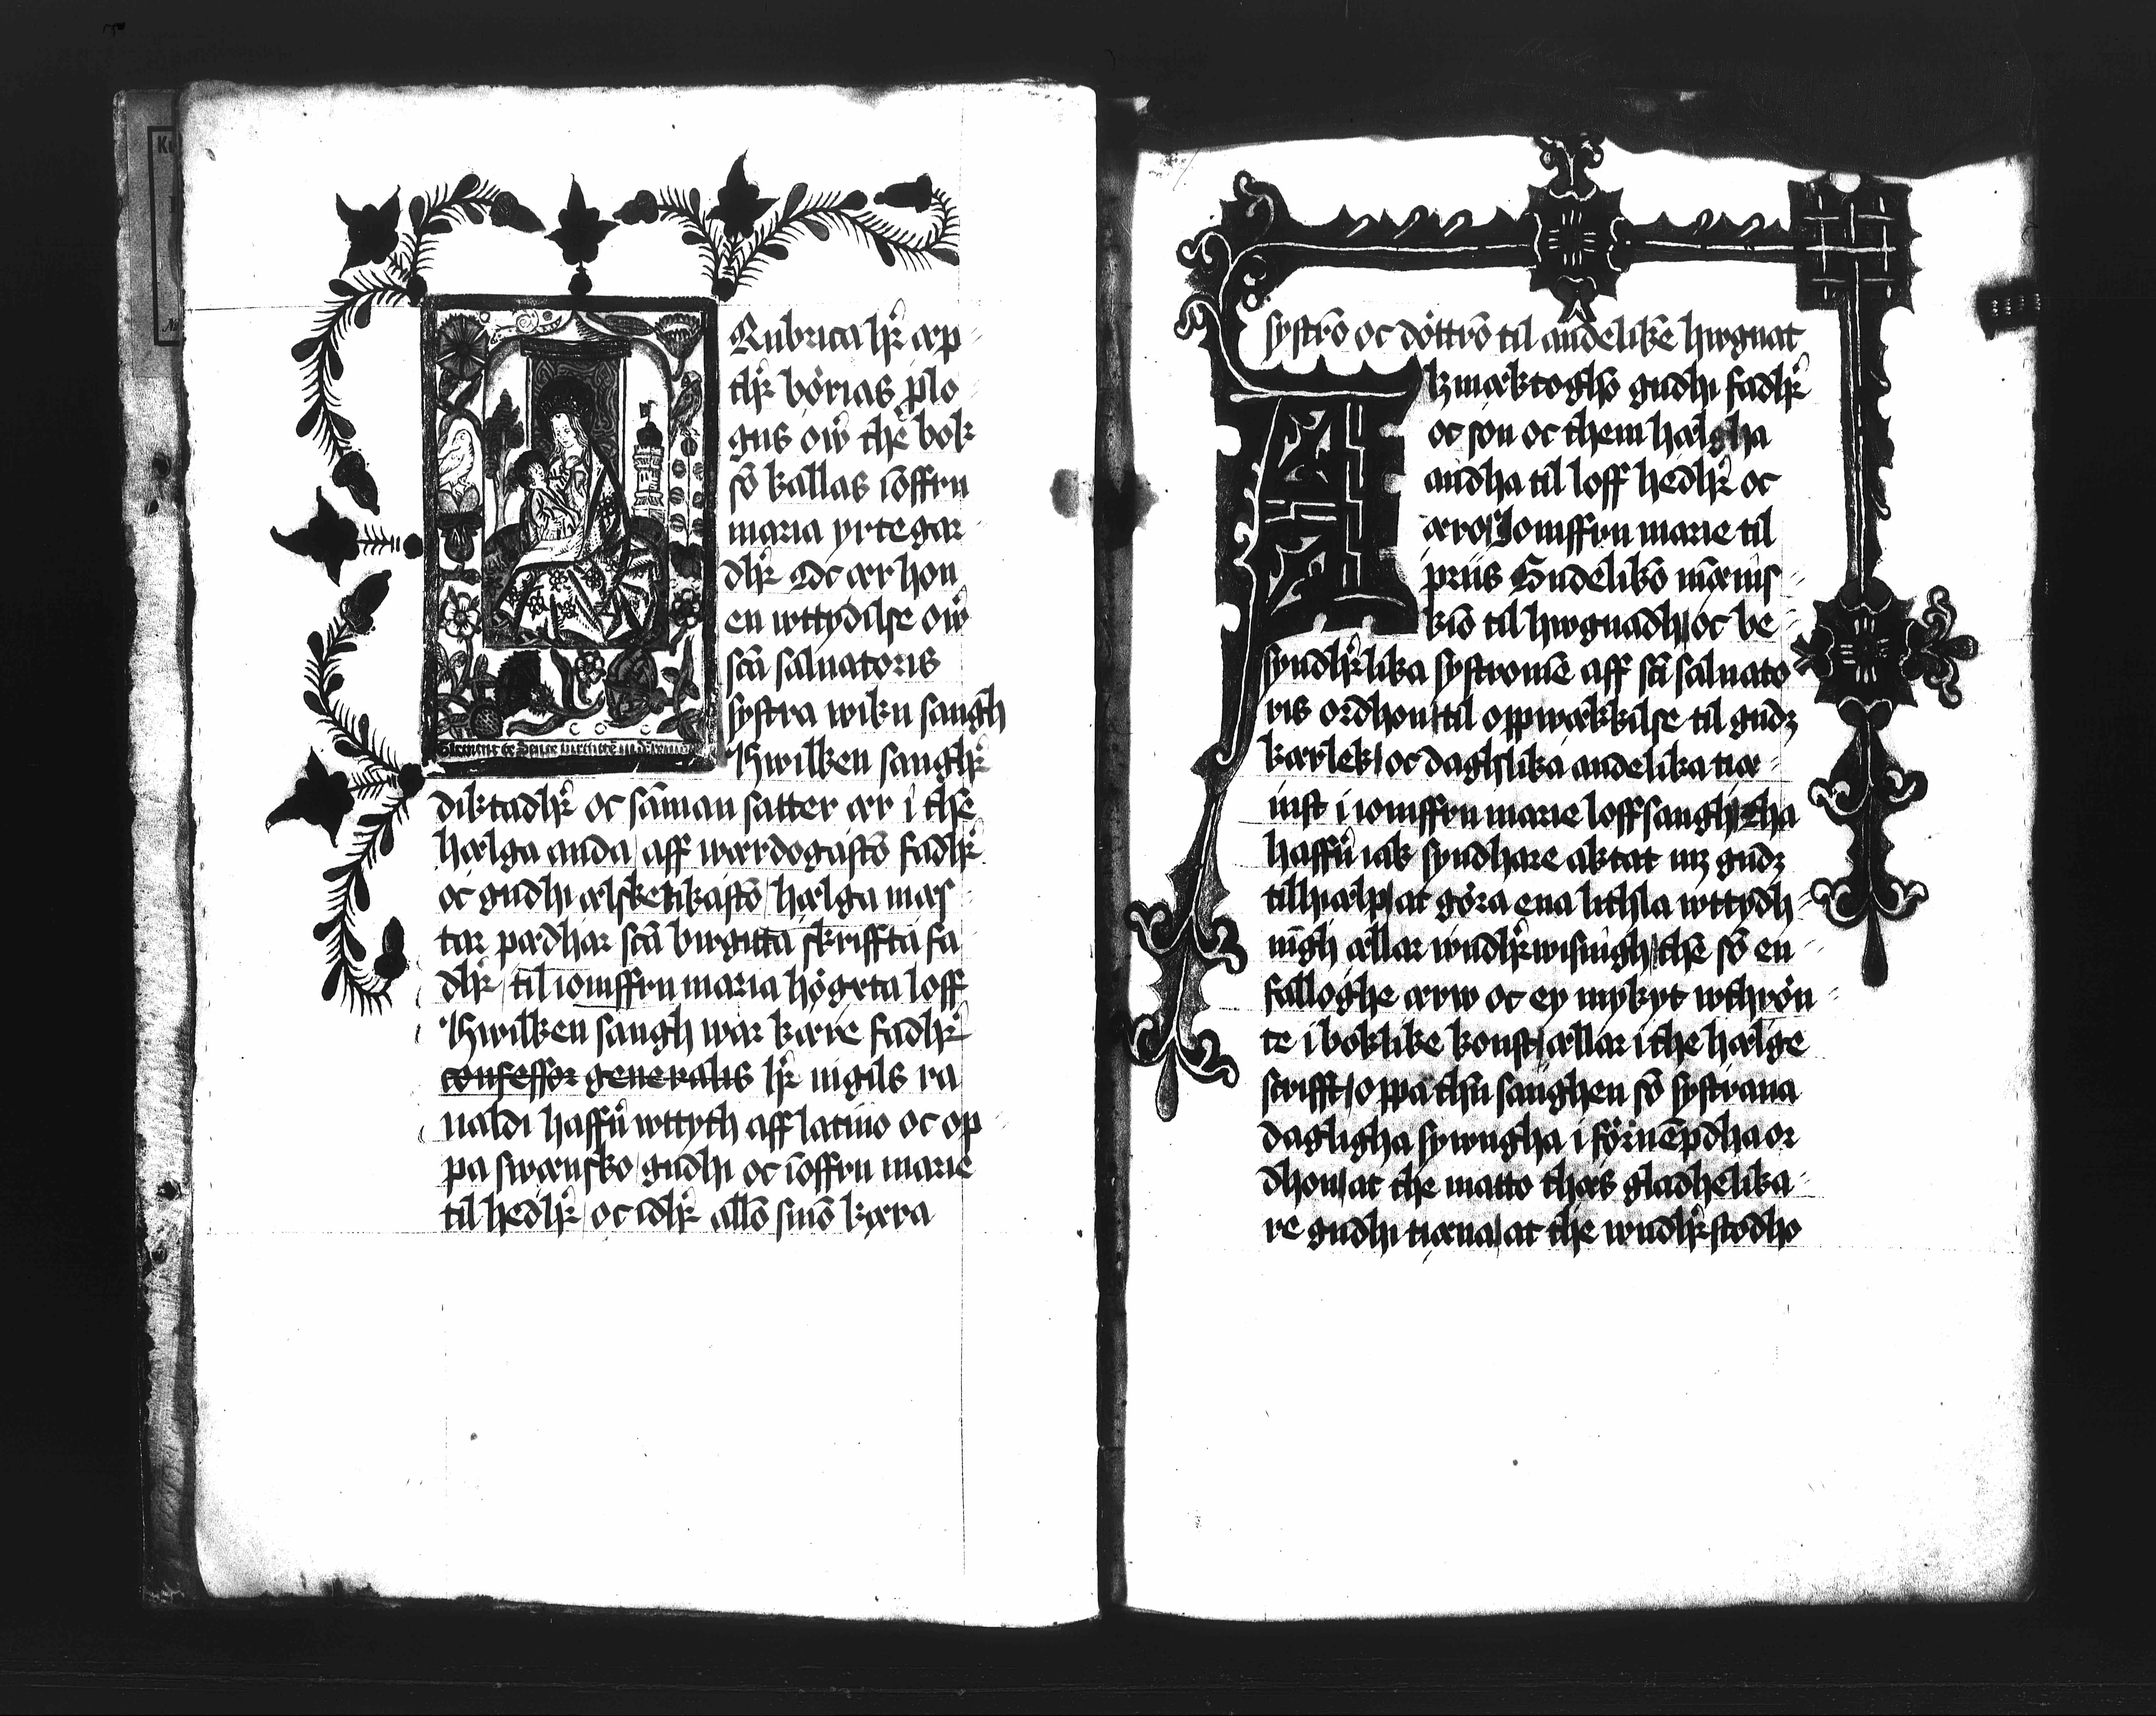 Rubrica hr̄ æp
thr̄ börias plo
gus ow̄ the bok
sō kallas iōffru
maria yrtegar
dhr̄ Oc ær hon
en wttydilse ow̄
scā saluatoris
systra wiku sangh
Hwilken sanghr̄
diktadhr̄ oc sāman satter ær i thē
hælga anda / aff wærdogastō fadhr̄
oc gudhi ælskelikastō / hælga mæs
tar pædhar scā birgitta skriffta fa
dhr̄ / til iomffru maria högxta loff
Hwilken sangh war kære fadhr̄
confessor generalis hr̄ nigils ra
ualdi haffr̄ wttyth aff latino oc op
pa swænsko / gudhi oc iōffru marie
til hedhr̄ / oc idhr̄ allō sinō kæra
systrō oc döttrō til andelikē hwgnat
A
lzmæktoghō gudhi fadhr̄
oc son oc them hælgha
andha til loff hedhr̄ oc
æro / Jomffru marie til
priis Gudelikō mæ̅nis
kiō til hwgnadh / oc be
syndhr̄lika systromē aff scī saluato
ris ordhon / til oppwækkilse til gudz
kærlek / oc daghlika andelika tiæ
inst i iomffru marie loffsangh / Tha
haffr̄ iak syndhare aktat mz gudz
tilhiælp / at göra ena lithla wttydh
nīgh ællar wndhr̄wisningh / thē sō en
falloghe ærw oc ey mykyt wthrön
te i boklike konst / ællar i the hælge
scrifft / oppa thn̄ sanghen sō systrana
dagligha sywngha i förnēpdha or
dhon / at the matto thæs gladhelika
re gudhi tiæna / at the wndhr̄stodho